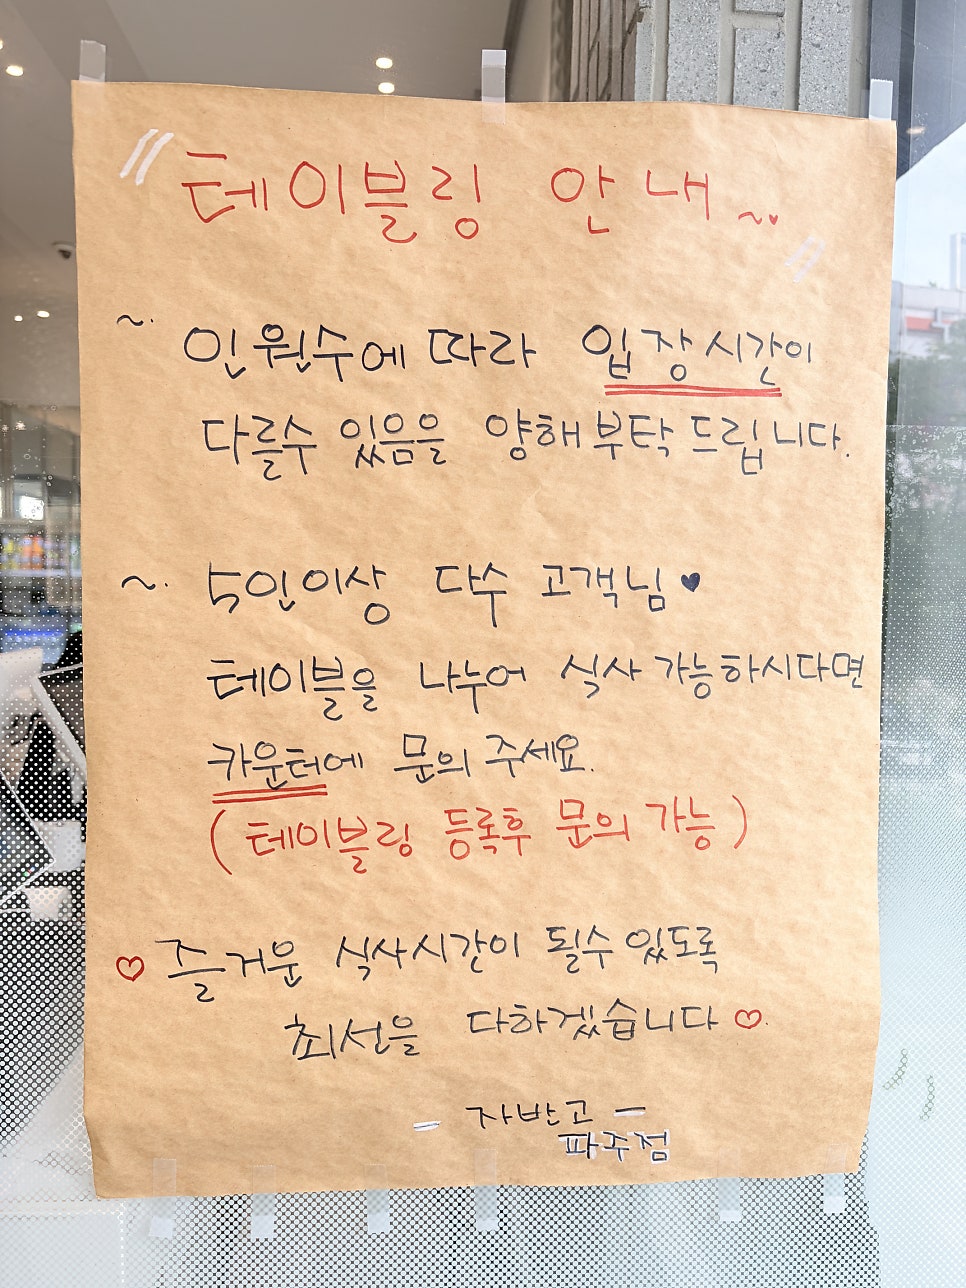 〃 테이블링 안내 ~♥ 〃
~. 인원수에 따라 입장시간이
다를수 있음을 양해부탁드립니다.
~. 5인이상 다수 고객님♥
테이블을 나누어 식사 가능하시다면
카운터에 문의 주세요.
(테이블링 등록후 문의 가능)
♡ 즐거운 식사시간이 될수 있도록
최선을 다하겠습니다♡.
- 자반고 -
파주점